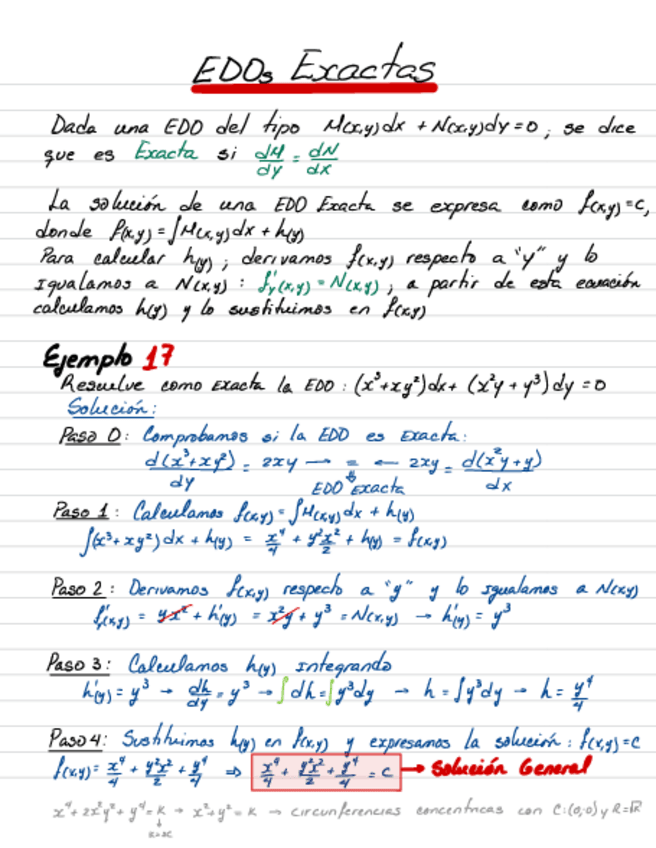 EDOs Exactas
Dada una EDO del tipo M(x,y)dx + N(x,y)dy = 0, se dice
que es Exacta si dM/dy = dN/dx
La solución de una EDO Exacta se expresa como f(x,y) = C,
donde f(x,y) = ∫M(x,y)dx + h(y)
Para calcular h(y), derivamos f(x,y) respecto a "y" y lo
Igualamos a N(x,y) : f'y(x,y) = N(x,y), a partir de esta ecuación
calculamos h(y) y lo sustituimos en f(x,y)
Ejemplo 17
Resuelve como exacta la EDO : (x³+xy²)dx + (x²y + y³)dy = 0
Solución:
Paso 0: Comprobamos si la EDO es Exacta:
d(x³+xy²)/dy = 2xy → = ← 2xy = d(x²y+y)/dx
EDO Exacta
Paso 1: Calculamos f(x,y) = ∫M(x,y)dx + h(y)
∫(x³+xy²)dx + h(y) = x⁴/4 + y²x²/2 + h(y) = f(x,y)
Paso 2: Derivamos f(x,y) respecto a "y" y lo Igualamos a N(x,y)
f'y(x,y) = yx² + h'(y) = x²y + y³ = N(x,y) → h'(y) = y³
Paso 3: Calculamos h(y) Integrando
h'(y) = y³ → dh/dy = y³ → ∫dh = ∫y³dy → h = ∫y³dy → h = y⁴/4
Paso 4: Sustituimos h(y) en f(x,y) y expresamos la solución : f(x,y) = C
f(x,y) = x⁴/4 + y²x²/2 + y⁴/4 ⇒ x⁴/4 + y²x²/2 + y⁴/4 = C → Solución General
x⁴ + 2x²y² + y⁴ = K → x² + y² = K → circunferencias concentricas con C:(0,0) y R=√K